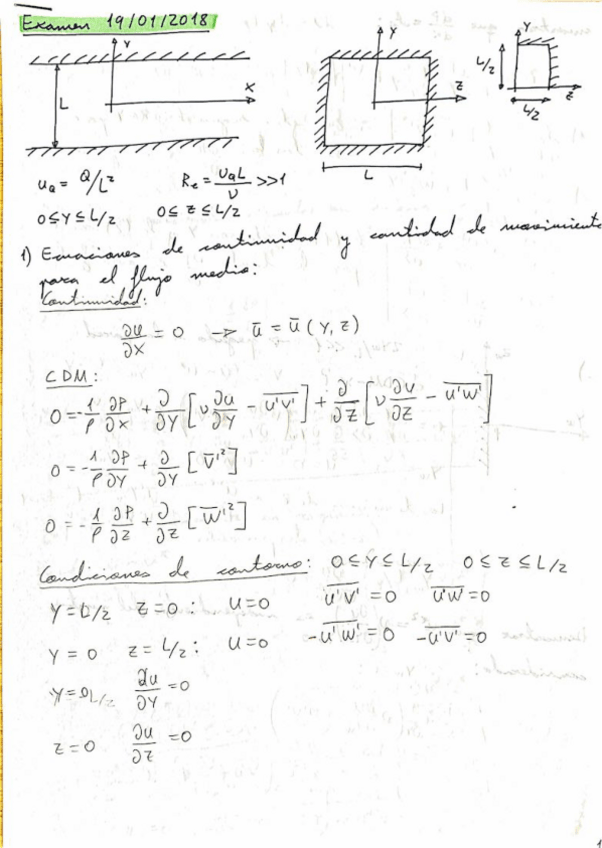 Examen 19/01/2018
Y
X
L
Y
Z
L
Y
L/2
Z
L/2
u_Q = Q/L² Re = u_Q L/ν >>1
0≤Y≤L/2 0≤Z≤L/2
1) Ecuaciones de continuidad y cantidad de movimiento
para el flujo medio:
Continuidad:
∂u/∂x = 0 → ū = ū (Y, Z)
CDM:
0 = -1/ρ ∂P/∂x + ∂/∂Y [ν ∂u/∂Y - \overline{u'v'}] + ∂/∂Z [ν ∂u/∂Z - \overline{u'w'}]
0 = -1/ρ ∂P/∂Y + ∂/∂Y [\overline{v'²}]
0 = -1/ρ ∂P/∂Z + ∂/∂Z [\overline{w'²}]
Condiciones de contorno: 0≤Y≤L/2 0≤Z≤L/2
Y=L/2 Z=0 : u=0 \overline{u'v'} = 0 \overline{u'w'} = 0
Y = 0 Z = L/2 : u=0 -\overline{u'w'} = 0 -\overline{u'v'} = 0
∂u/∂Y = 0
Z = 0 ∂u/∂Z = 0
1